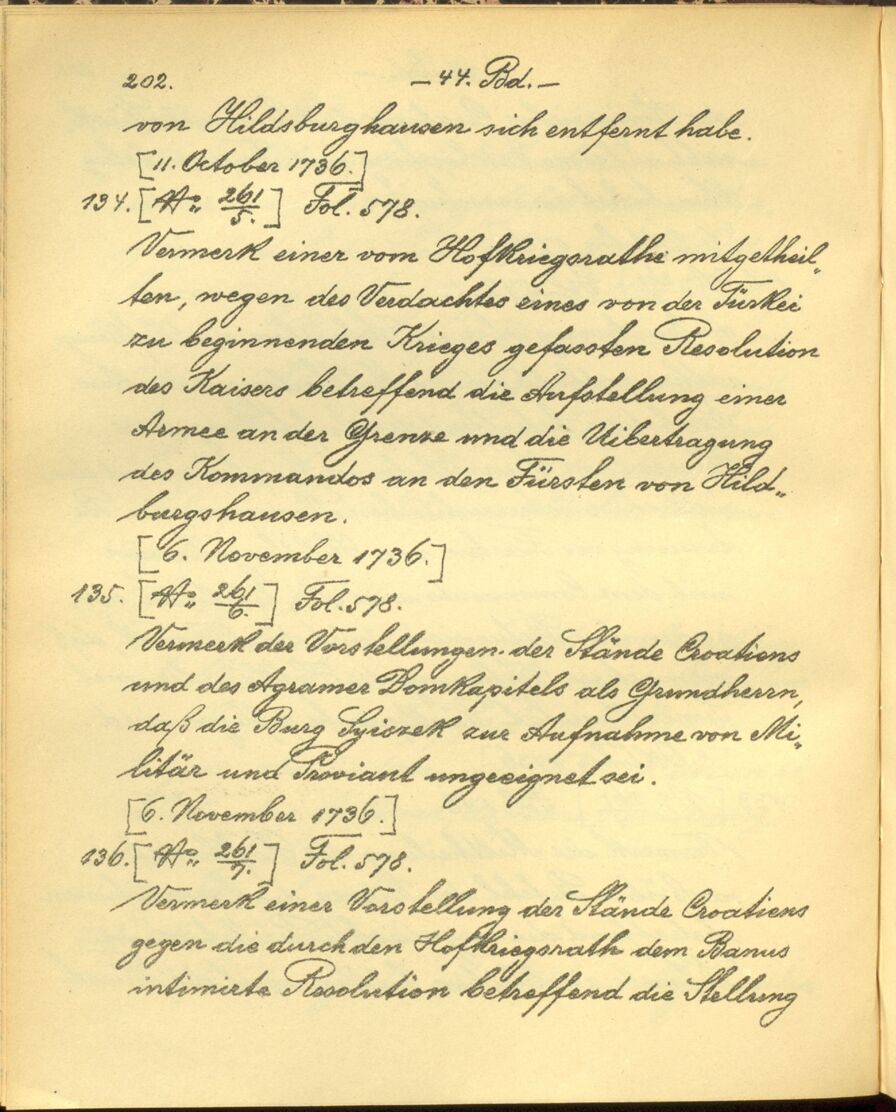 202. – 44. Bd. –
von Hildsburghausen sich entfernt habe.
[11. October 1736.]
134. [No 261/5.] Fol. 578.
Vermerk einer vom Hofkriegsrathe mitgetheil„
ten, wegen des Verdachtes eines von der Türkei
zu beginnenden Krieges gefassten Resolution
des Kaisers betreffend die Aufstellung einer
Armee an der Grenze und die Uibertragung
des Kommandos an den Fürsten von Hild„
burgshausen.
[6. November 1736.]
135. [No 261/6.] Fol. 578.
Vermerk der Vorstellungen der Stände Croatiens
und des Agramer Domkapitels als Grundherrn,
daß die Burg Sziszek zur Aufnahme von Mi„
litär und Proviant ungeeignet sei.
[6. November 1736.]
136. [No 261/7.] Fol. 578.
Vermerk einer Vorstellung der Stände Croatiens
gegen die durch den Hofkriegsrath dem Banus
intimirte Resolution betreffend die Stellung